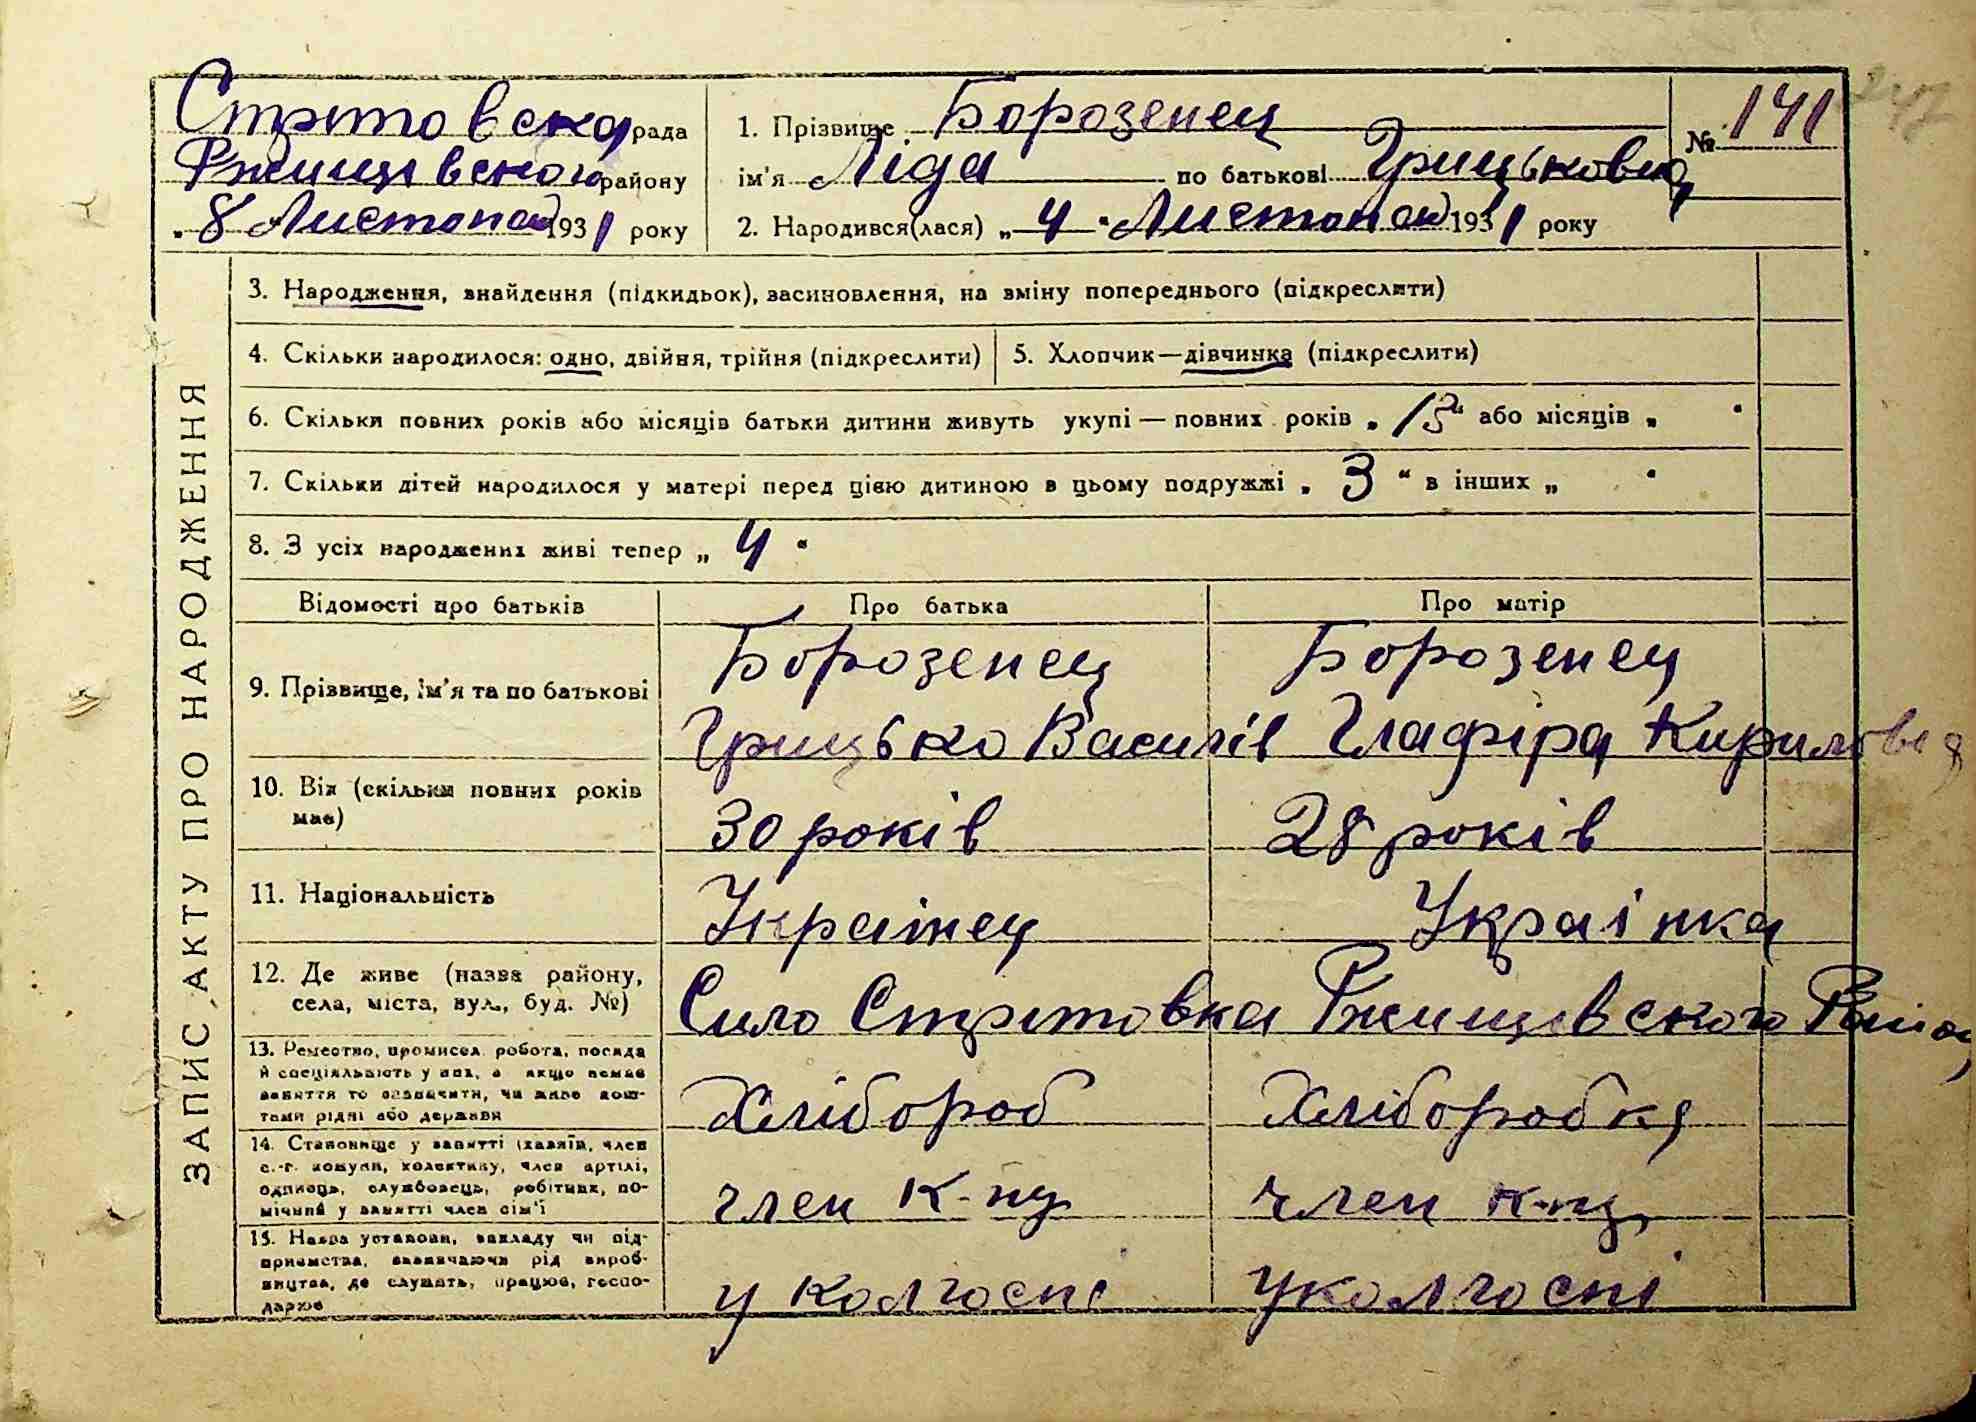 Стритовска рада
Ржищівського району
„ 8 " Листопад 1931 року
1. Прізвище Борозенец
№ 141
ім'я Ліда по батькові Грицьковна
2. Народився(лася) „ 4 " Листопад 1931 року
ЗАПИС АКТУ ПРО НАРОДЖЕННЯ
3. Народження, знайдення (підкидьок), засиновлення, на зміну попереднього (підкреслити)
4. Скільки народилося: одно, двійня, трійня (підкреслити)
5. Хлопчик—дівчинка (підкреслити)
6. Скільки повних років або місяців батьки дитини живуть укупі — повних років „ " або місяців „ "
7. Скільки дітей народилося у матері перед цією дитиною в цьому подружжі „ 3 " в інших „ "
8. З усіх народжених живі тепер „ 4 "
Відомості про батьків
Про батька
Про матір
9. Прізвище, ім'я та по батькові
Борозенец
Грицько Василів
Борозенец
Глафіра Кирилівна
10. Вік (скільки повних років
має)
30 років
28 років
11. Національність
Украінец
Украінка
12. Де живе (назва району,
села, міста, вул., буд. №)
Сило Стритовка Ржищівского Району
13. Ремество, промисел, робота, посада
й спеціяльність у них, а якщо немає
заняття то зазначити, чи живе кош-
тами рідні або держави
Хлібороб
Хліборобка
14. Становище у занятті (хазяїн, член
с.-г. комуни, колективу, член артілі,
одинець, службовець, робітник, по-
мічний у занятті член сім'ї
член к-пу
член к-пу
15. Назва установи, закладу чи під-
приємства, зазначаючи рід вироб-
ництва, де служить, працює, госпо-
дарює
у колгоспі
у колгоспі